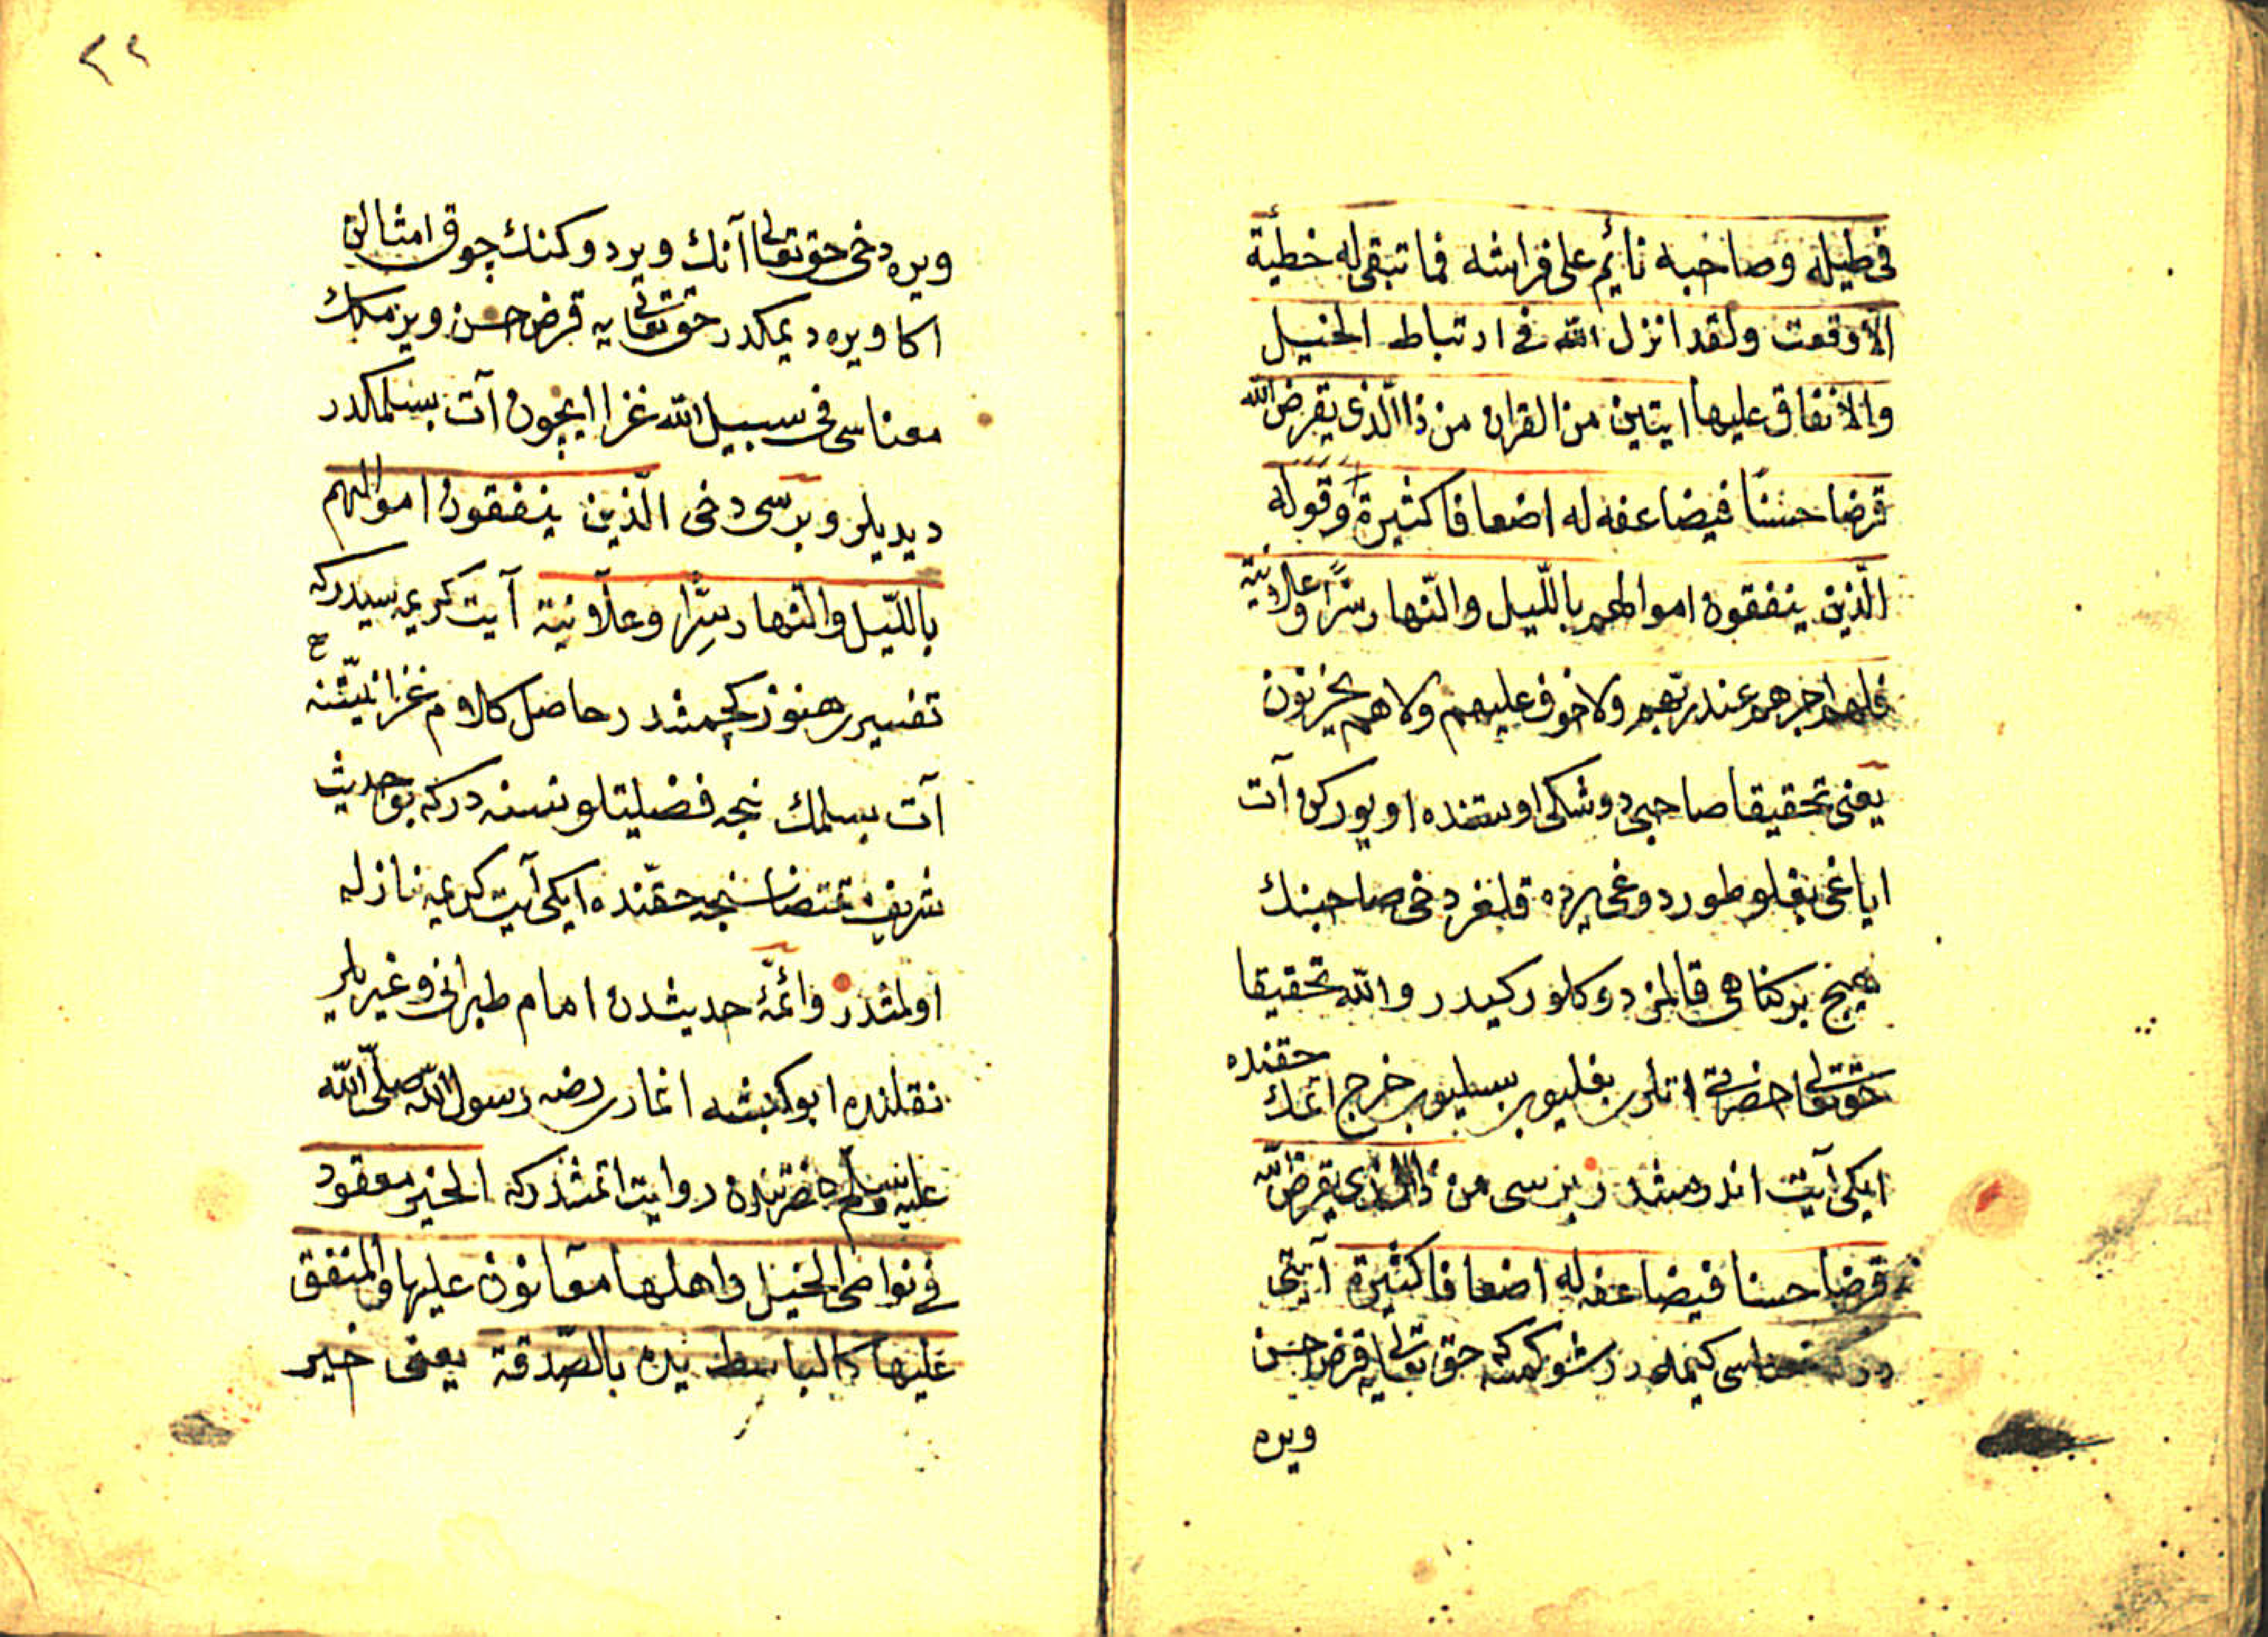 فى طيله وصاحبه نائم على فراشه فما تبقى له خطيئة
الا وقعت ولقد انزل الله فى ارتباط الخيل
والانفاق عليها ايتين من القران من ذا الذى يقرض الله
قرضا حسنا فيضاعفه له اضعافا كثيرة وقوله
الّذين ينفقون اموالهم بالّليل والنّهار سرّا وعلانية
فلهم اجرهم عند ربّهم ولا خوف عليهم ولا هم يحزنون
يعنى تحقيقا صاحبى دوشكى اوستنده اويوركن آت
اياغى بغلو طوردوغى يرده قلغر دخى صاحبنك
هيچ بر كناهى قالمز دوكلور كيدر والله تحقيقا
حقتعالى حضرتى اتلرى بغليوب بسليوب خرج اتمك حقنده
ايكى آيت اندرمشدر بريسى من ذا الذى يقرض الله
قرضا حسنا فيضاعفه له اضعافا كثيرة آيتى
در كه معناسى كيمدر شو كمسه حق تعالىيه قرض حسن
ويره
٢٢
ويره دخى حق تعالى آنك ويردوكنك چوق امثالن
اكا ويره ديمكدر حق تعالىيه قرض حسن ويرمكك
معناسى فى سبيل الله غزا ايچون آت بسلمكدر
ديديلر وبرسى دخى الّذين ينفقون اموالهم
بالّليل والنّهار سِرًّا وعلانية آيت كريمه سيدركه
تفسير هنوز كچمشدر حاصل كلام غزا نيّتنه
آت بسلمك نجه فضيلتلو نسنه دركه بو حديث
شريف مقتضاسنجه حقّنده ايكى آيت كريمه نازله
اولمشدر وائمّۀ حديثدن امام طبرانى وغيريلر
نقلنده ابو كبشه انمارى رضه رسول الله صلّى الله
عليه وسلّم حضرتندن روايت اتمشدركه الخير معقود
فى نواصى الخيل واهلها معانون عليها والمنفق
عليها كالباسط يده بالصّدقة يعنى خير